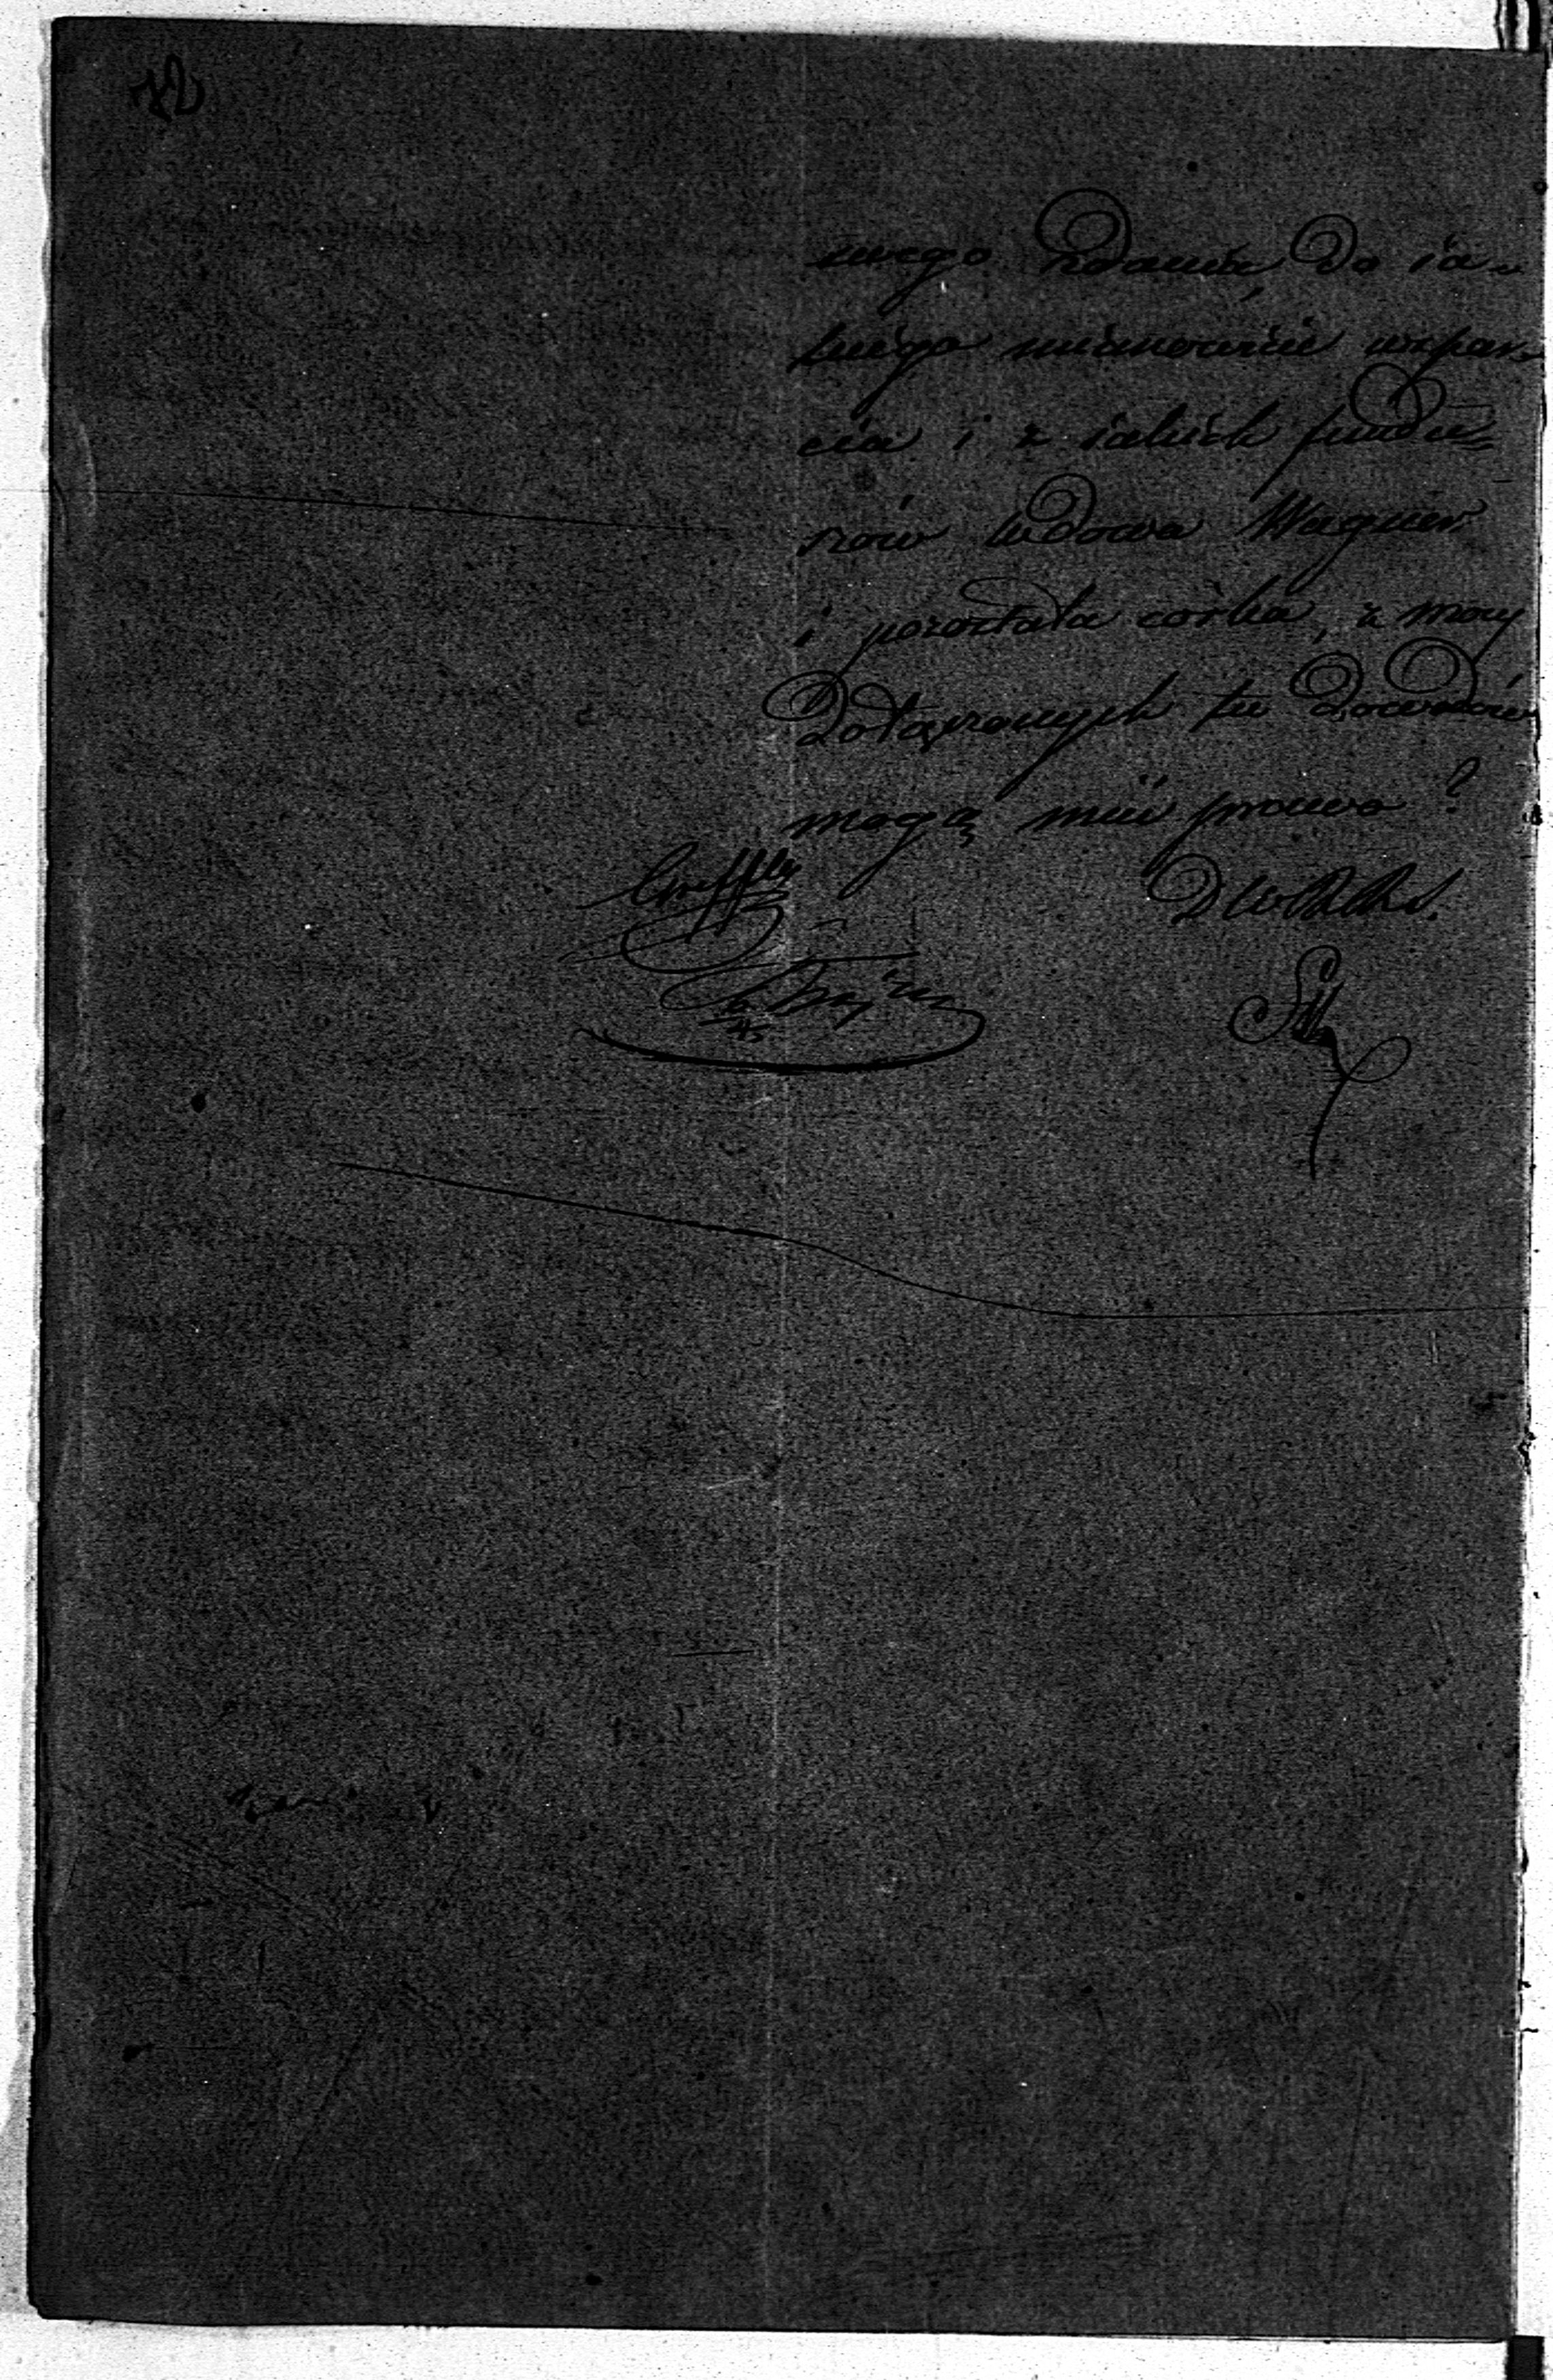 swego zdania do ia-
kiego mianowicie wspar-
cia i z iakich fundu-
szów wdowa Wagner
i pozostała córka, z mocy
dołączonych tu dowodów
mogą mieć prawo?